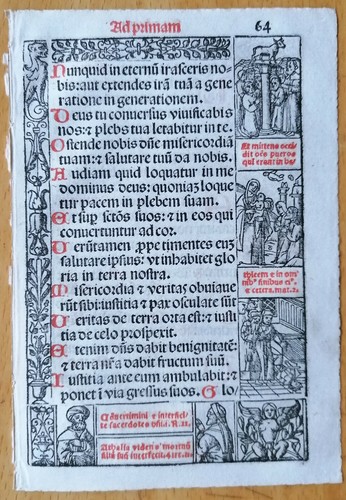 Ad primam
64
Nunquid in eternũ irasceris no-
bis: aut extendes irã tuã a gene
ratione in generationem.
Deus tu conuersus viuificabis
nos: ⁊ plebs tua letabitur in te.
Ostende nobis dñe misericordiã
tuam: ⁊ salutare tuũ da nobis.
Audiam quid loquatur in me
dominus deus: quoniaʒ loque
tur pacem in plebem suam.
Et sup̄ sctõs suos: ⁊ in eos qui
conuertuntur ad cor.
Verũtamen ꝓpe timentes euʒ
salutare ipsius: vt inhabitet glo
ria in terra nostra.
Misericordia ⁊ veritas obuiaue
rũt sibi: iustitia ⁊ pax osculate sũt
Veritas de terra orta est: ⁊ iusti
tia de celo prospexit.
Etenim dñs dabit benignitatẽ:
⁊ terra nr̃a dabit fructum suũ.
Iustitia ante eum ambulabit: ⁊
ponet ĩ via gressus suos. Glo
Et mittens occi
dit oẽs pueros
qui erant in be
thleem e in om
finibus
et cetera. mat. 2.
te sacerdotes
Athalia videns mortuũ